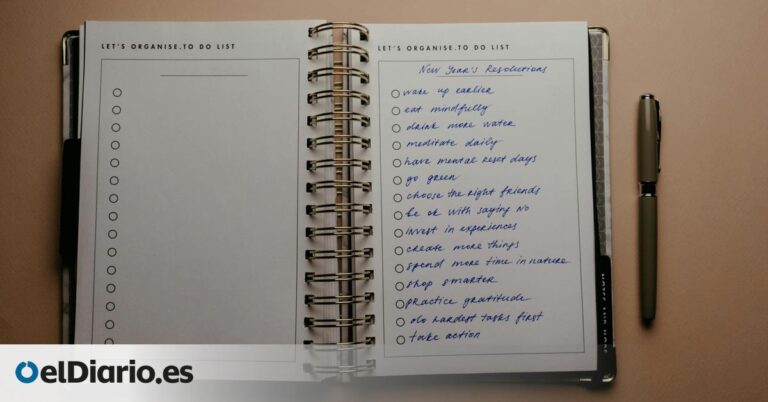 LET'S ORGANISE.TO DO LIST
LET'S ORGANISE.TO DO LIST
New Year's Resolutions
wake up earlier
eat mindfully
drink more water
meditate daily
have mental reset days
go green
choose the right friends
be ok with saying no
invest in experiences
create more things
spend more time in nature
shop smarter
practice gratitude
do hardest tasks first
take action
elDiario.es